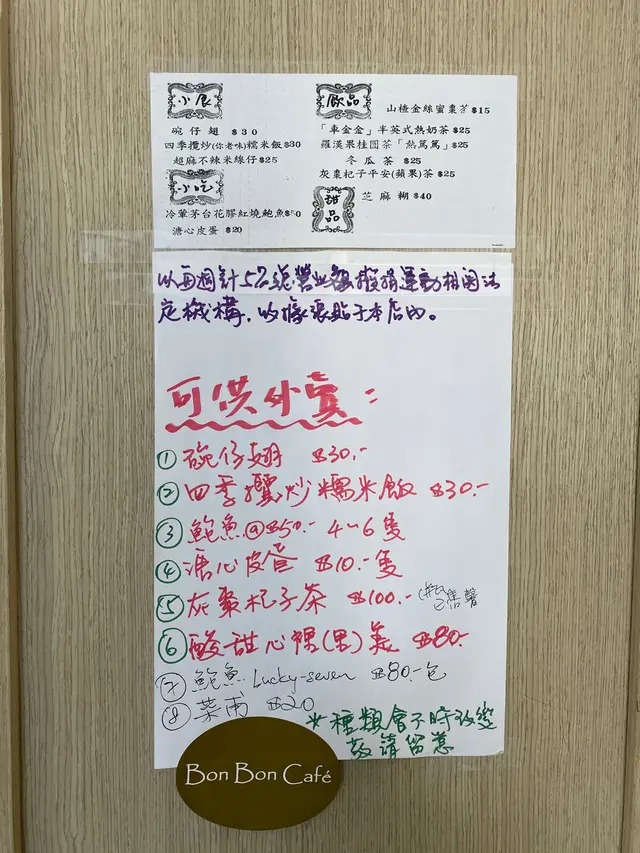 小食
碗仔翅 $30
四季攬炒(你老味)糯米飯$30
超麻不辣米線仔$25
小吃
冷暈茅台花膠紅燒鮑魚
溏心皮蛋 $20
飲品
山楂金絲蜜棗茶$15
「車金金」半英式熱奶茶$25
羅漢果桂圓茶「熱篤篤」$25
冬瓜茶 $25
灰棗杞子平安(蘋果)茶$25
甜品
芝麻糊$40
以每週計5%總營業額撥捐運動相関法
定機構,收據張貼于本店內。
可供外賣:
① 碗仔翅 $30.-
② 四季攬炒糯米飯 $30.-
③ 鮑魚@$50.- 4~6隻
④ 溏心皮蛋 $10.-隻
⑤ 灰棗杞子茶 $100.- 已售罄
⑥ 酸甜心裡(里)美 $80.-
⑦ 鮑魚 Lucky-seven $80.-包
⑧ 菜甫 $20
*種類會不時改變
敬請留意
Bon Bon Café